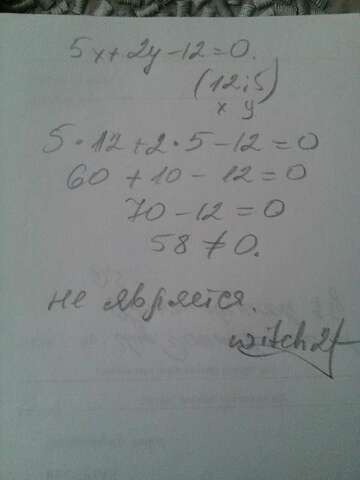 5x+2y-12=0.
(12;5)
x y
5·12+2·5-12=0
60+10-12=0
70-12=0
58≠0.
не является.
witch24